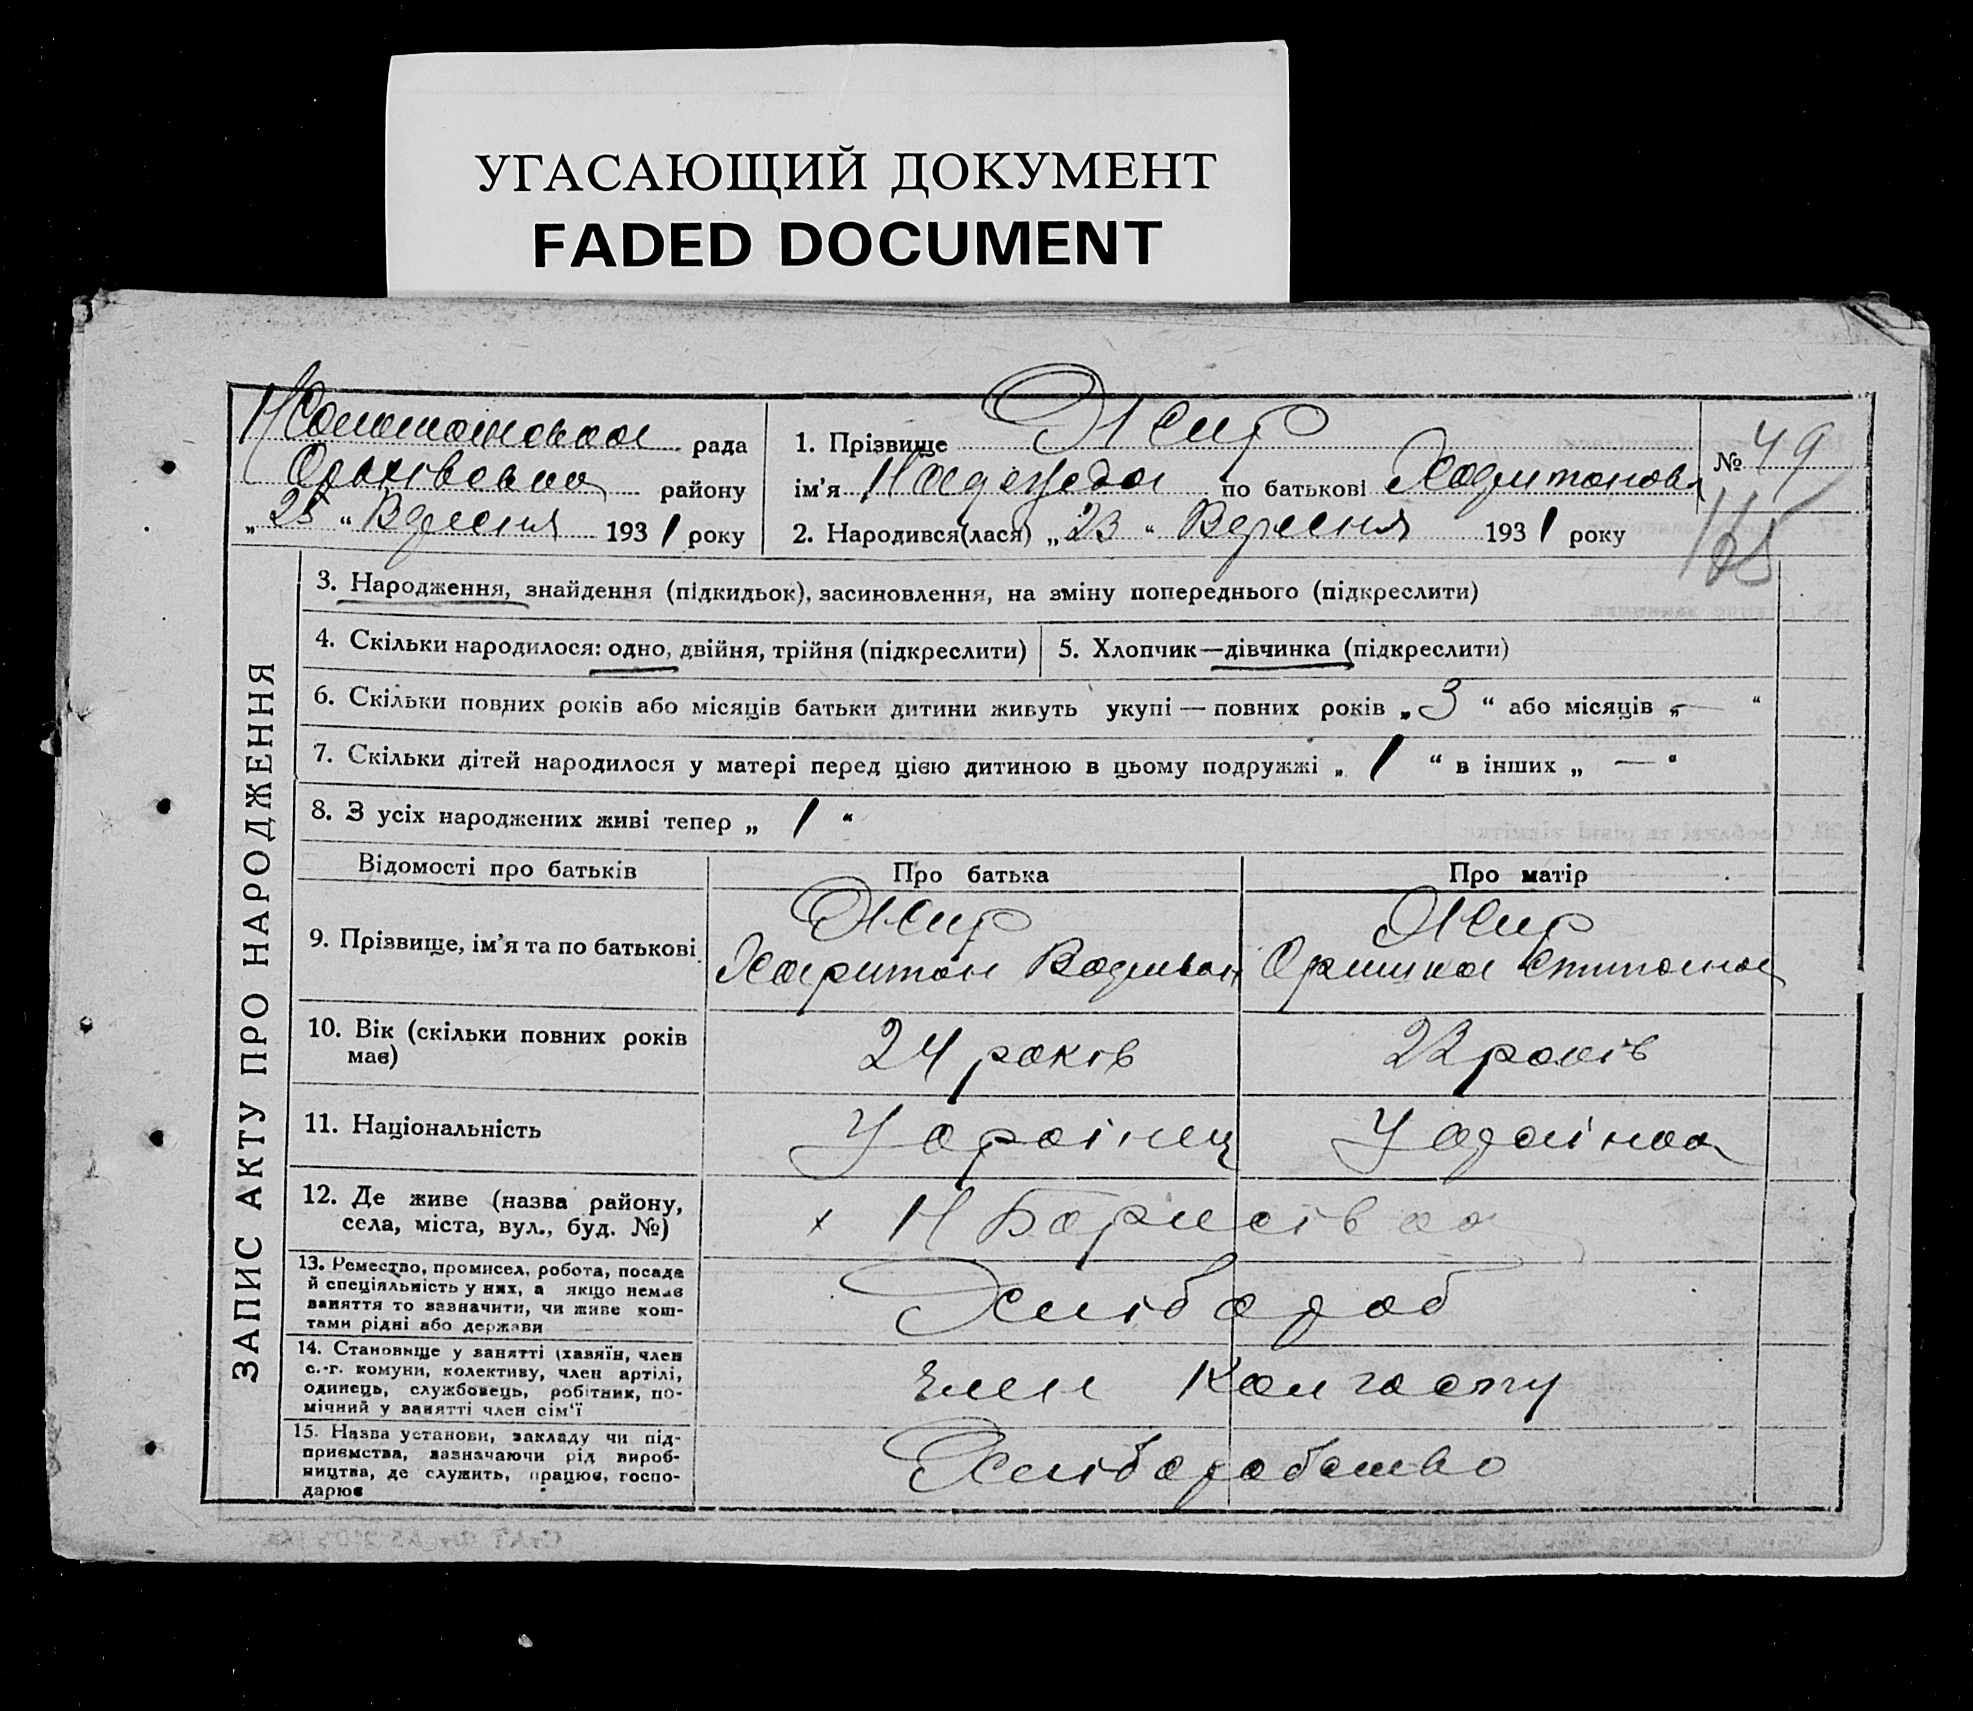 УГАСАЮЩИЙ ДОКУМЕНТ
FADED DOCUMENT
рада
району
„ 25 “ Вересня 1931 року
1. Прізвище Жир
ім’я Надежда по батькові Харитонова
№ 49
2. Народився(лася) „ 23 “ Вересня 1931 року
165
ЗАПИС АКТУ ПРО НАРОДЖЕННЯ
3. Народження, знайдення (підкидьок), засиновлення, на зміну попереднього (підкреслити)
4. Скільки народилося: одно, двійня, трійня (підкреслити)
5. Хлопчик—дівчинка (підкреслити)
6. Скільки повних років або місяців батьки дитини живуть укупі — повних років „ 3 “ або місяців „ — “
7. Скільки дітей народилося у матері перед цією дитиною в цьому подружжі „ 1 “ в інших „ — “
8. З усіх народжених живі тепер „ 1 “
Відомості про батьків
Про батька
Про матір
9. Прізвище, ім’я та по батькові
Жир
Харитон
Жир
Оришка
10. Вік (скільки повних років
має)
24 років
22 років
11. Національність
Українец
Українка
12. Де живе (назва району,
села, міста, вул., буд. №)
х Н Борисівка
13. Ремество, промисел, робота, посада
й спеціяльність у них, а якщо немає
заняття то зазначити, чи живе кош-
тами рідні або держави
Хлібороб
14. Становище у занятті (хазяїн, член
с.-г. комуни, колективу, член артілі,
одинець, службовець, робітник, по-
мічний у занятті член сім’ї
Член Колгоспу
15. Назва установи, закладу чи під-
приємства, зазначаючи рід вироб-
ництва, де служить, працює, госпо-
дарює
Хліборобство